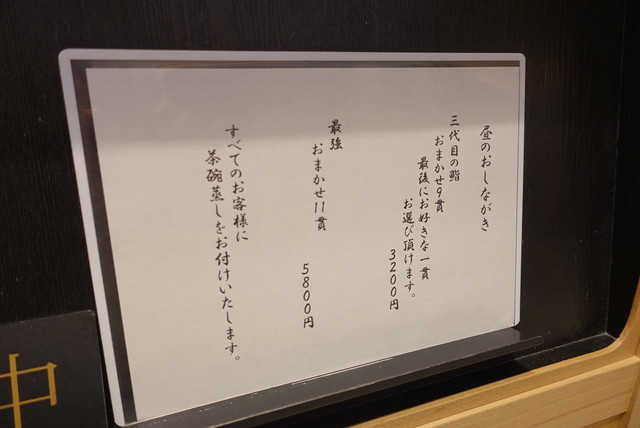 昼のおしながき
三代目の鮨
おまかせ9貫
最後にお好きな一貫
お選び頂けます。
3200円
最強
おまかせ11貫
5800円
すべてのお客様に
茶碗蒸しをお付けいたします。
中